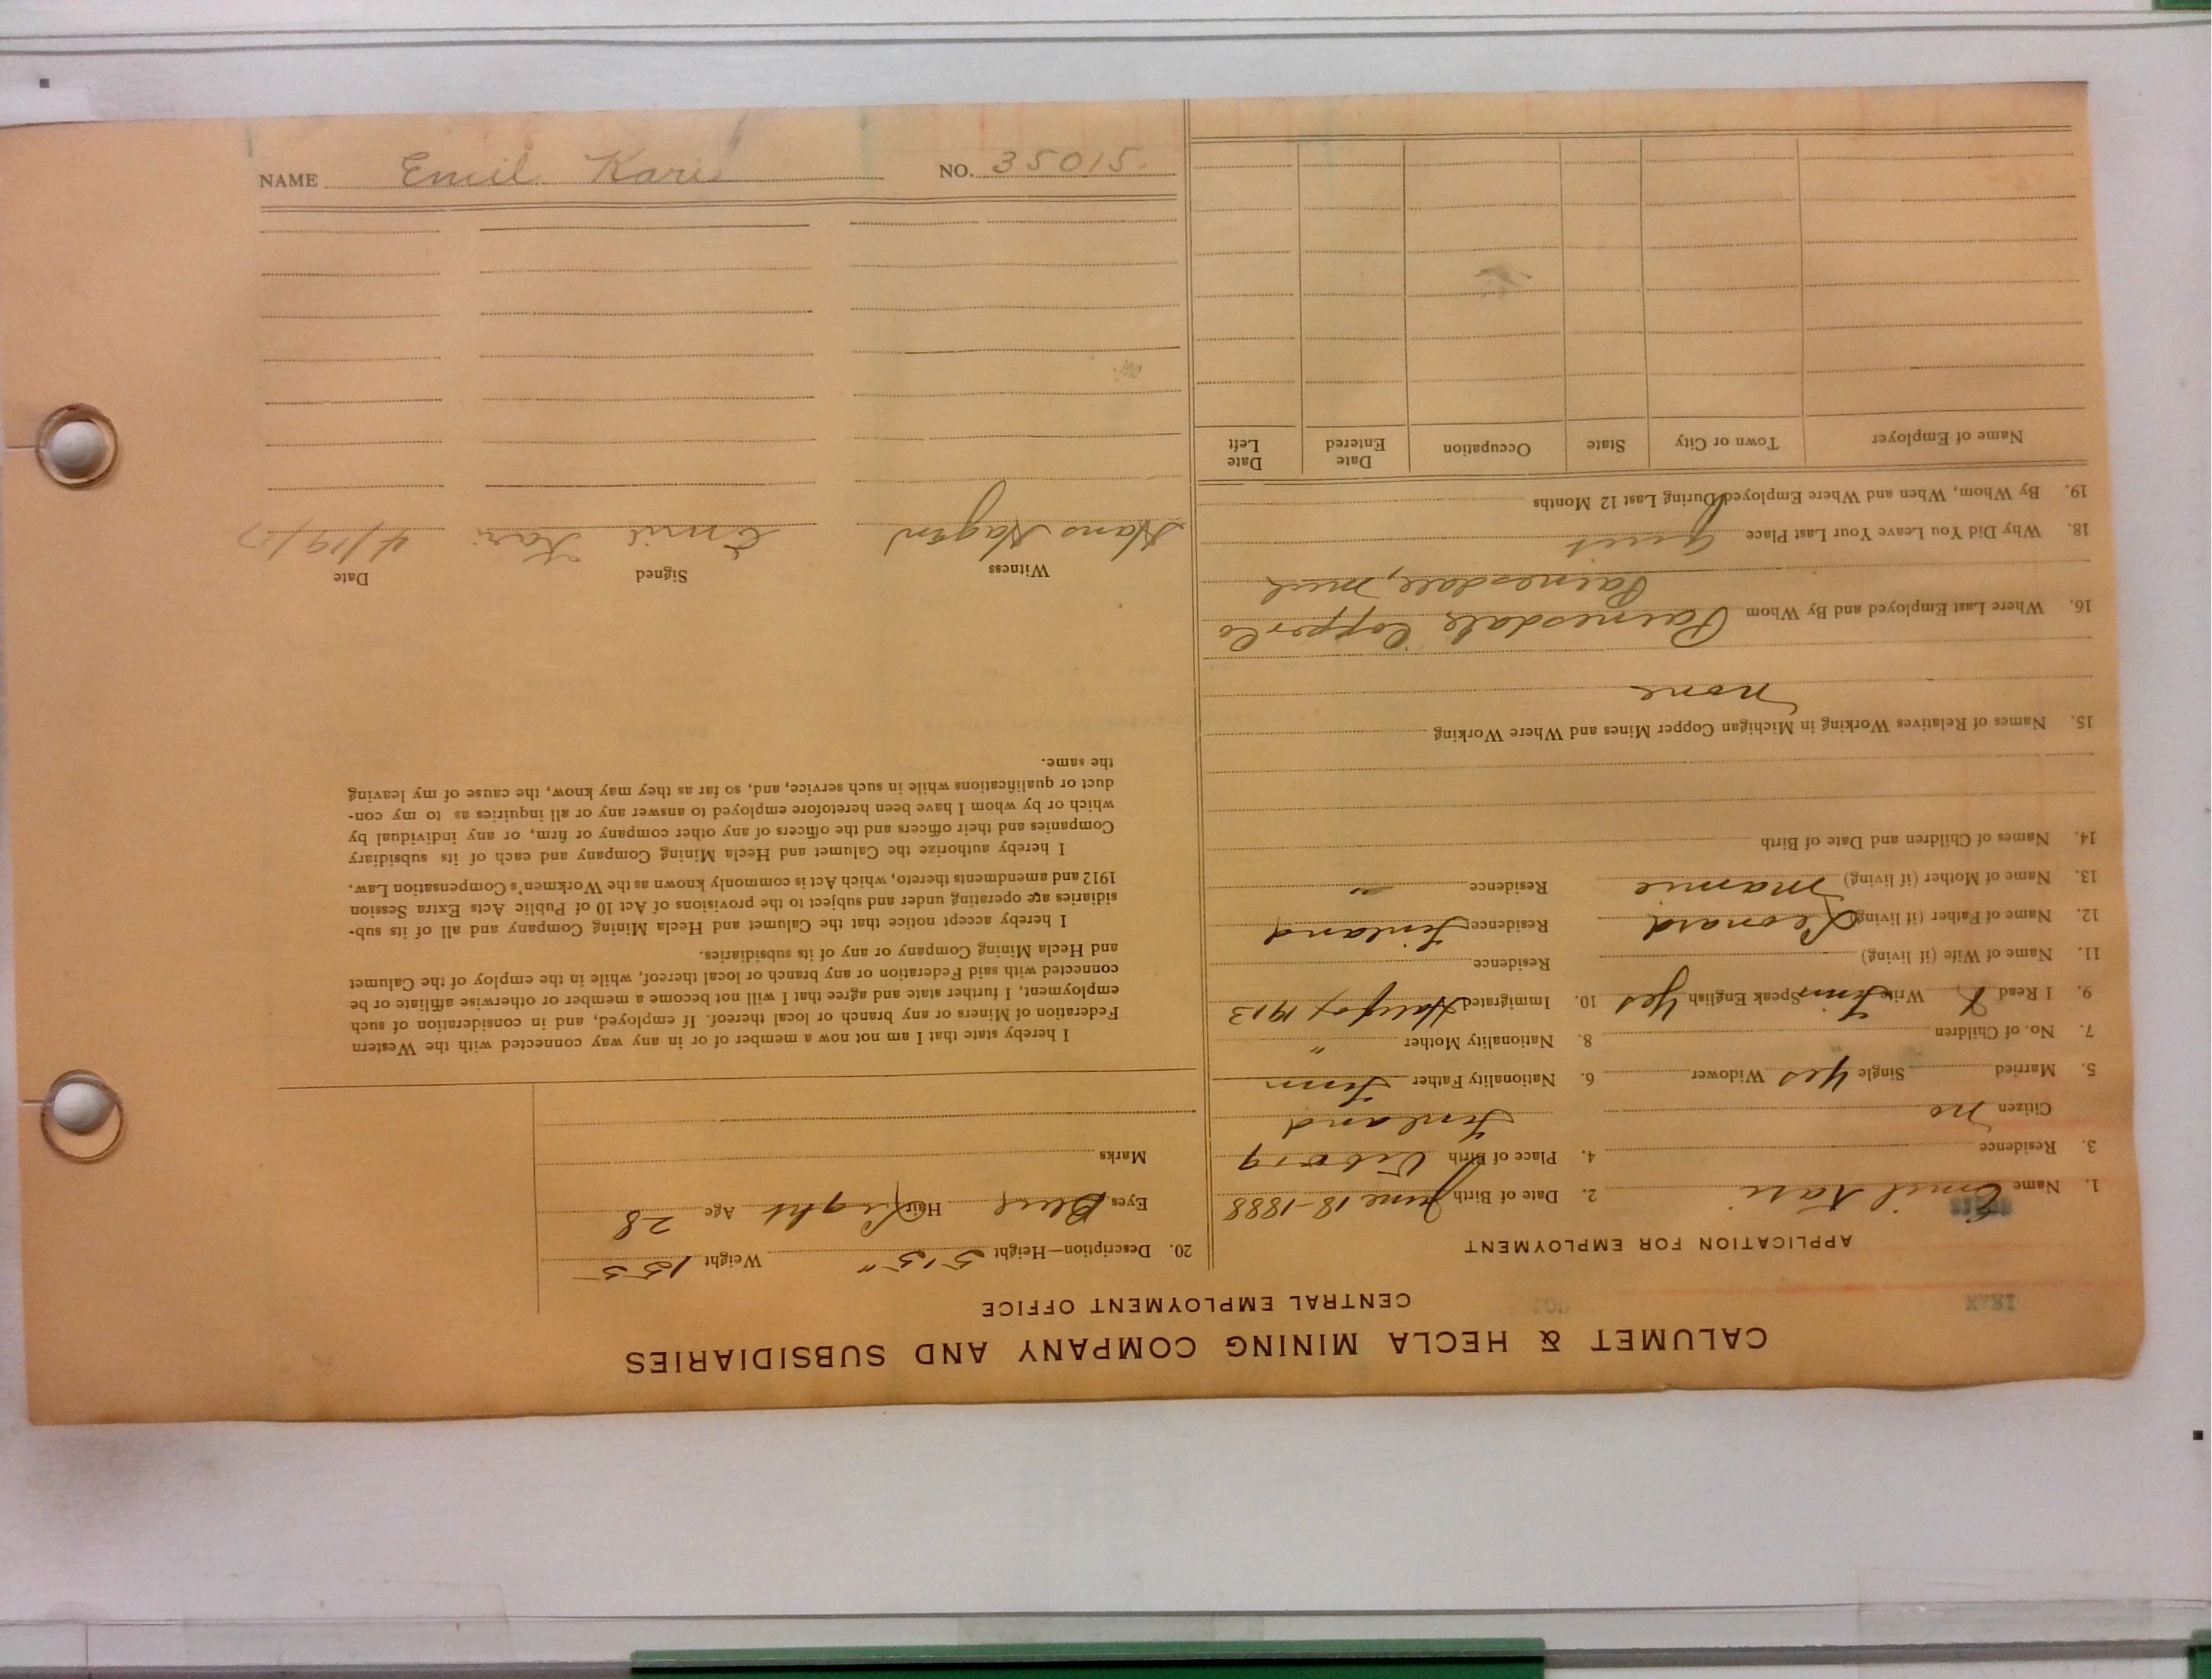 CALUMET & HECLA MINING COMPANY AND SUBSIDIARIES
CENTRAL EMPLOYMENT OFFICE
APPLICATION FOR EMPLOYMENT
1. Name Emil Kari 2. Date of Birth June 18-1888
3. Residence 4. Place of Birth Viborg
Citizen no Finland
5. Married Single Yes Widower 6. Nationality Father Finn
7. No. of Children 8. Nationality Mother "
9. I Read Write Finn Speak English Yes 10. Immigrated Halifax 1913
11. Name of Wife (if living) Residence
12. Name of Father (if living) Leonard Residence Finland
13. Name of Mother (if living) Mamie Residence "
14. Names of Children and Date of Birth
15. Names of Relatives Working in Michigan Copper Mines and Where Working
none
16. Where Last Employed and By Whom Painesdale Copper Co
Painesdale, Mich
18. Why Did You Leave Your Last Place Quit
19. By Whom, When and Where Employed During Last 12 Months
Name of Employer Town or City State Occupation Date Entered Date Left
20. Description—Height 5'5" Weight 155
Eyes Blue Hair Light Age 28
Marks
I hereby state that I am not now a member of or in any way connected with the Western
Federation of Miners or any branch or local thereof. If employed, and in consideration of such
employment, I further state and agree that I will not become a member or otherwise affiliate or be
connected with said Federation or any branch or local thereof, while in the employ of the Calumet
and Hecla Mining Company or any of its subsidiaries.
I hereby accept notice that the Calumet and Hecla Mining Company and all of its sub-
sidiaries are operating under and subject to the provisions of Act 10 of Public Acts Extra Session
1912 and amendments thereto, which Act is commonly known as the Workmen's Compensation Law.
I hereby authorize the Calumet and Hecla Mining Company and each of its subsidiary
Companies and their officers and the officers of any other company or firm, or any individual by
which or by whom I have been heretofore employed to answer any or all inquiries as to my con-
duct or qualifications while in such service, and, so far as they may know, the cause of my leaving
the same.
Witness Signed Date
Hans Hagen Emil Kari 4/19/17
NAME Emil Kari NO. 35015